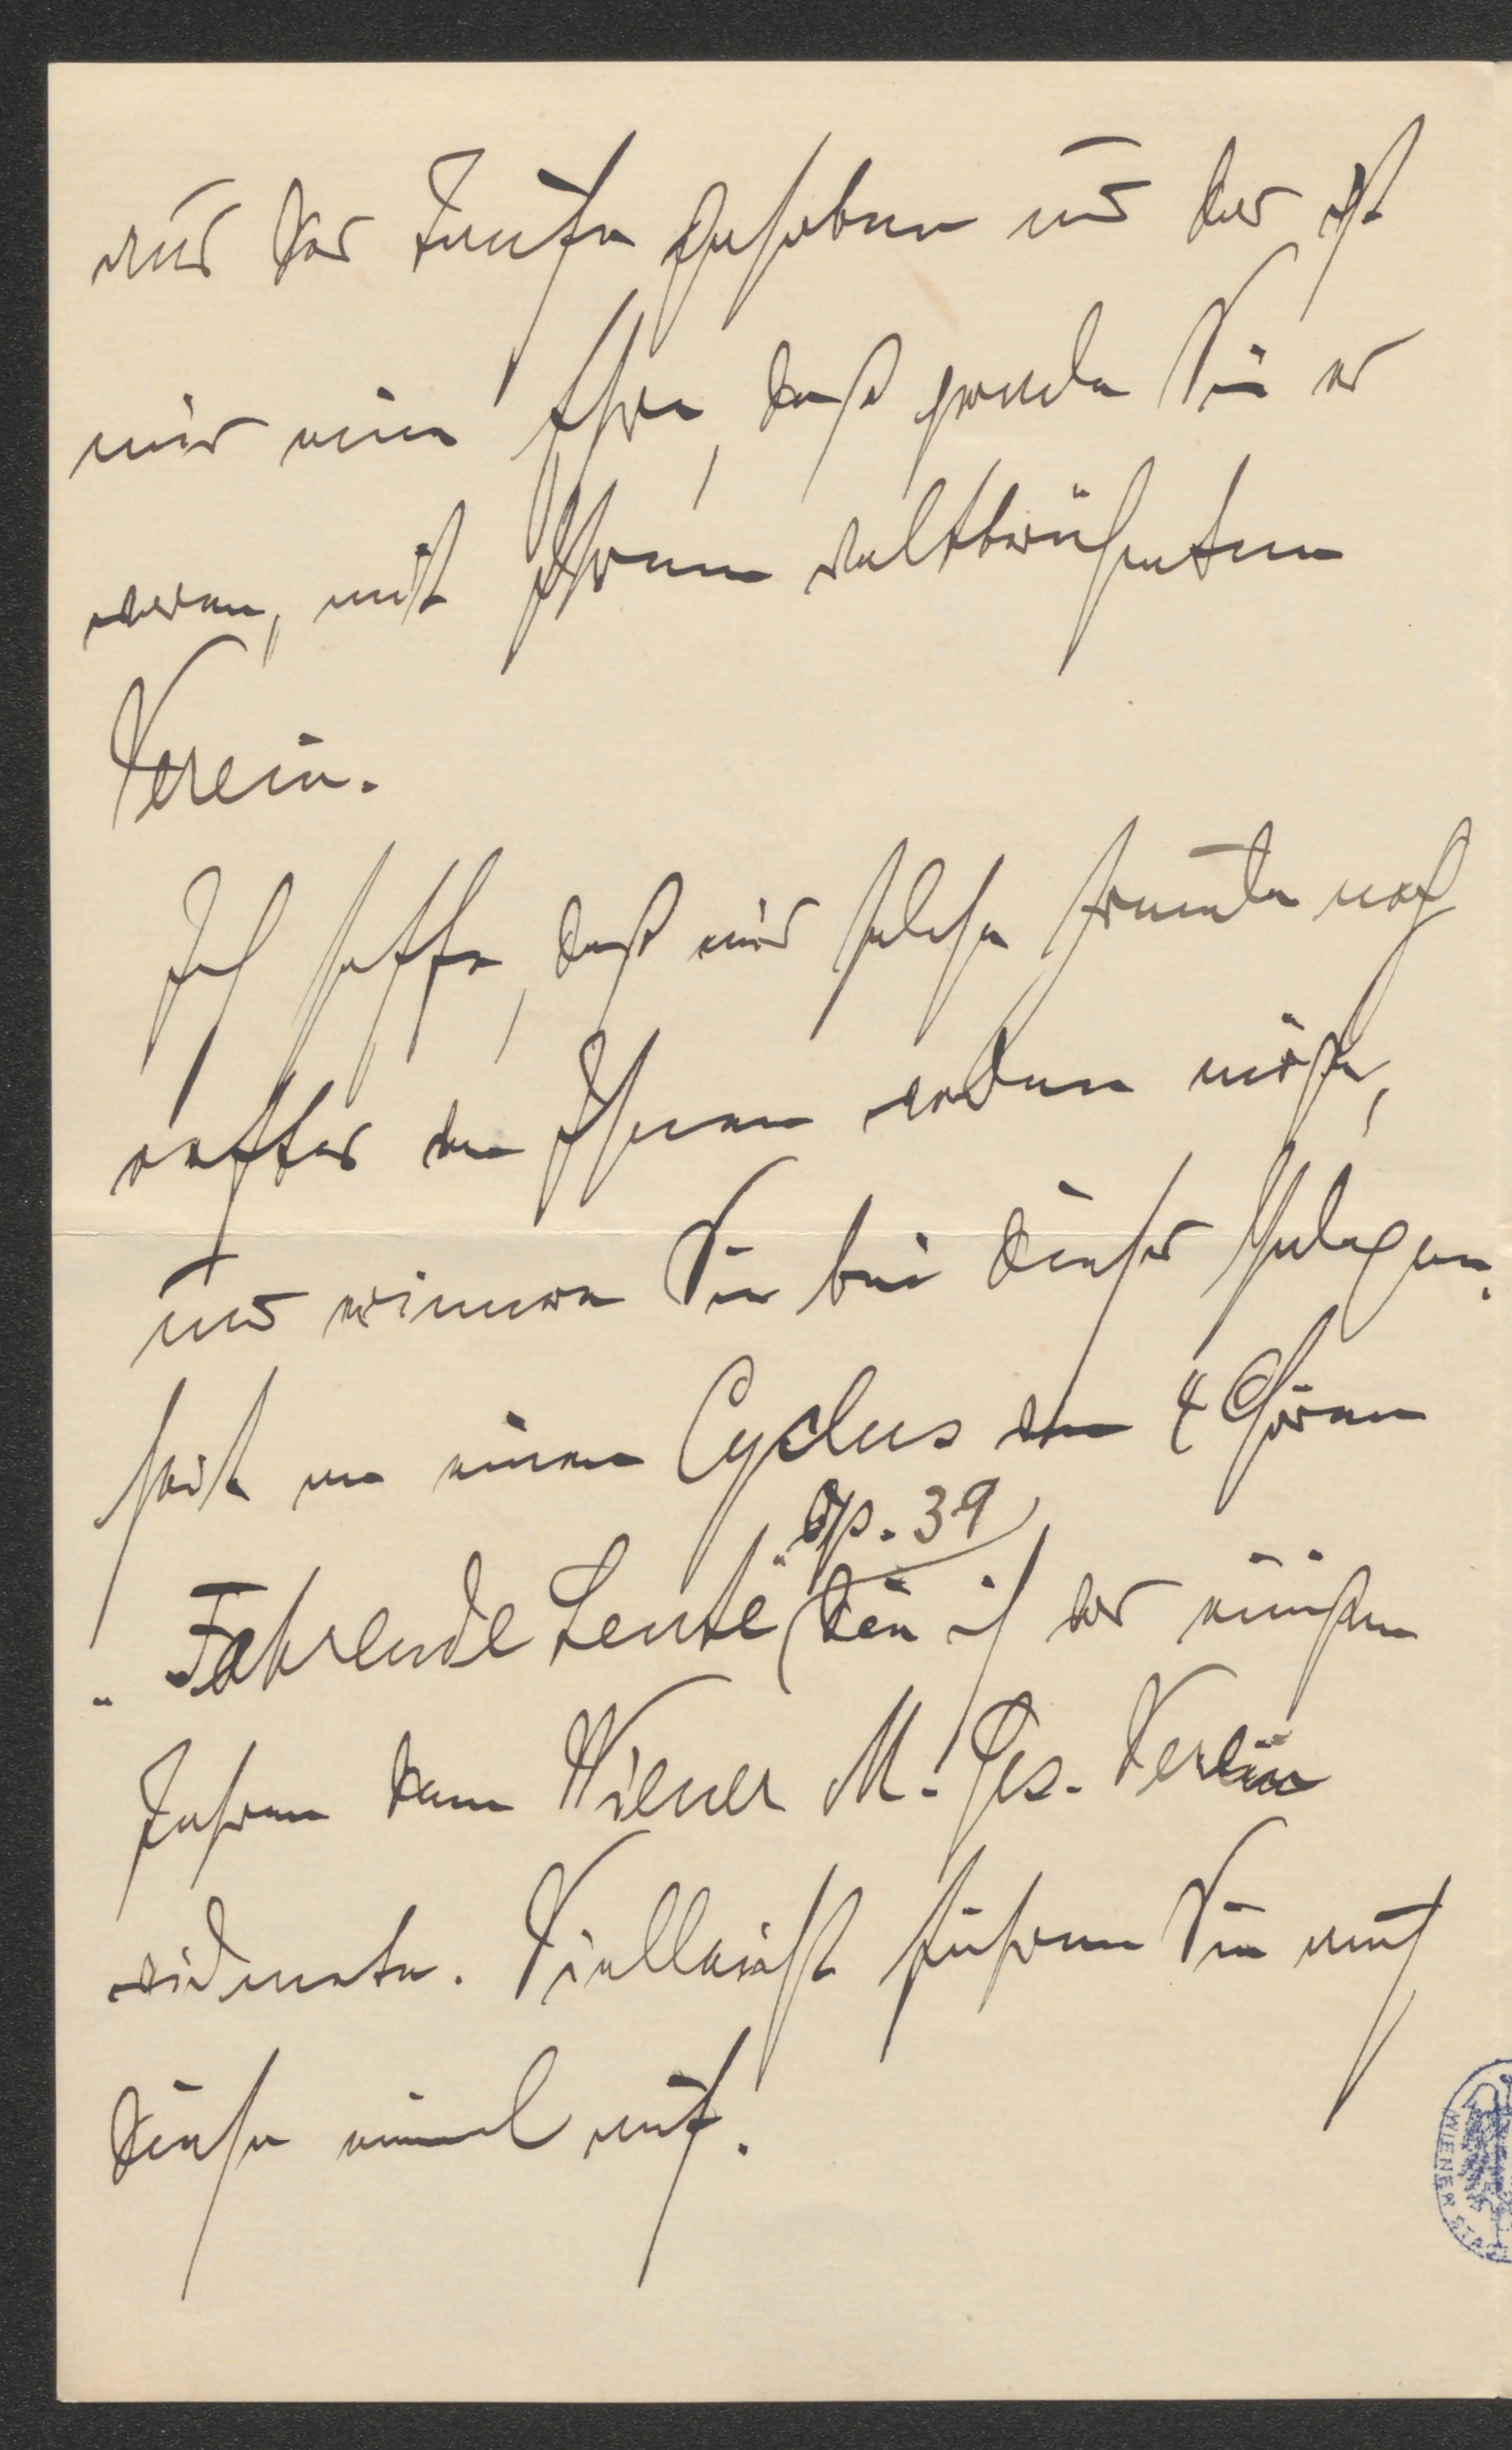 aus der Taufe gehoben und das ist
mir eine Ehre, daß gerade Sie es
waren, mit Ihrem weltberühmten
Verein.
Ich hoffe, daß mir solche Freude noch
öfter von Ihnen werden möge,
und erinnere Sie bei dieser Gelegen-
heit an einen Cyclus von 4 Chören
op. 39
„Fahrende Leute" den ich vor einigen
Jahren dem Wiener M. Ges. Verein
widmete. Vielleicht führen Sie auch
diese einmal auf.
WIENER STA